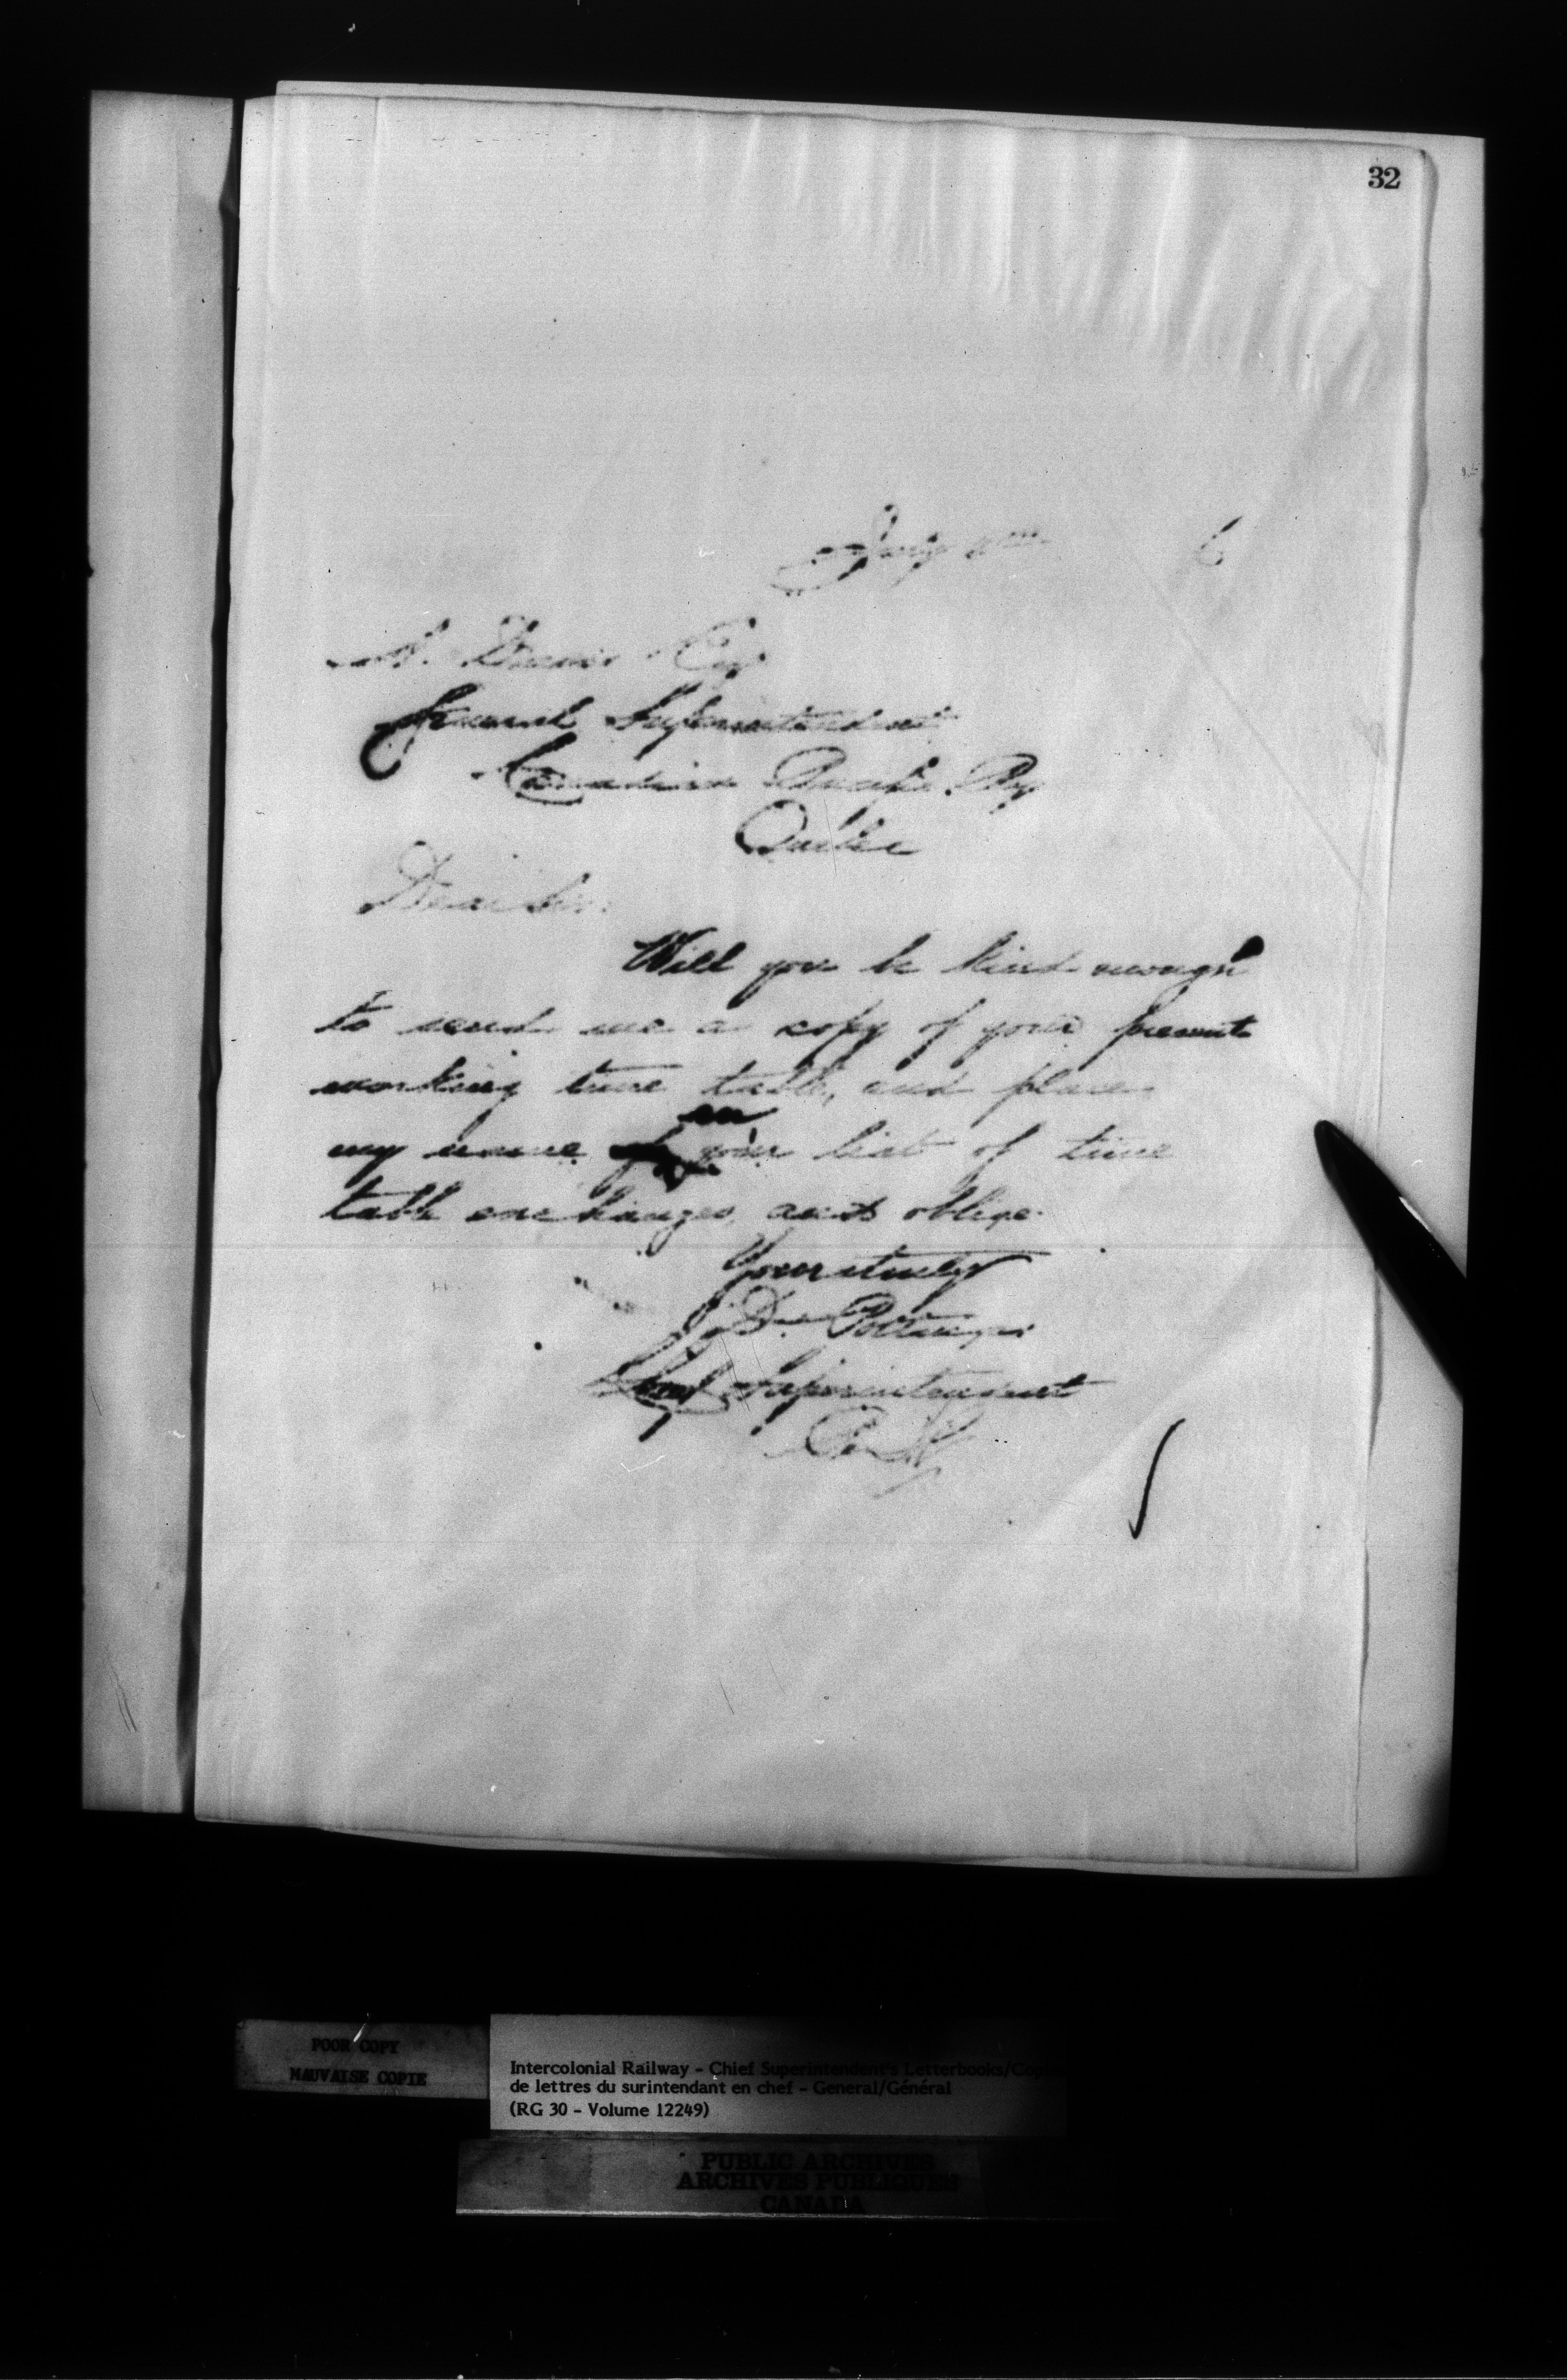 32
July
6
Esq
General Superintendent
Canadian Pacific Ry
Quebec
Dear Sir:
Will you be kind enough
to send me a copy of your present
working time table, and place
on
my name your list of time
table exchanges, and oblige.
Yours truly
D. Pottinger
Chief Superintendent
Per
POOR COPY
MAUVAISE COPIE
Intercolonial Railway - Chief Superintendent's Letterbooks/Cop
de lettres du surintendant en chef - General/Général
(RG 30 - Volume 12249)
PUBLIC ARCHIVES
ARCHIVES PUBLIQUES
CANADA